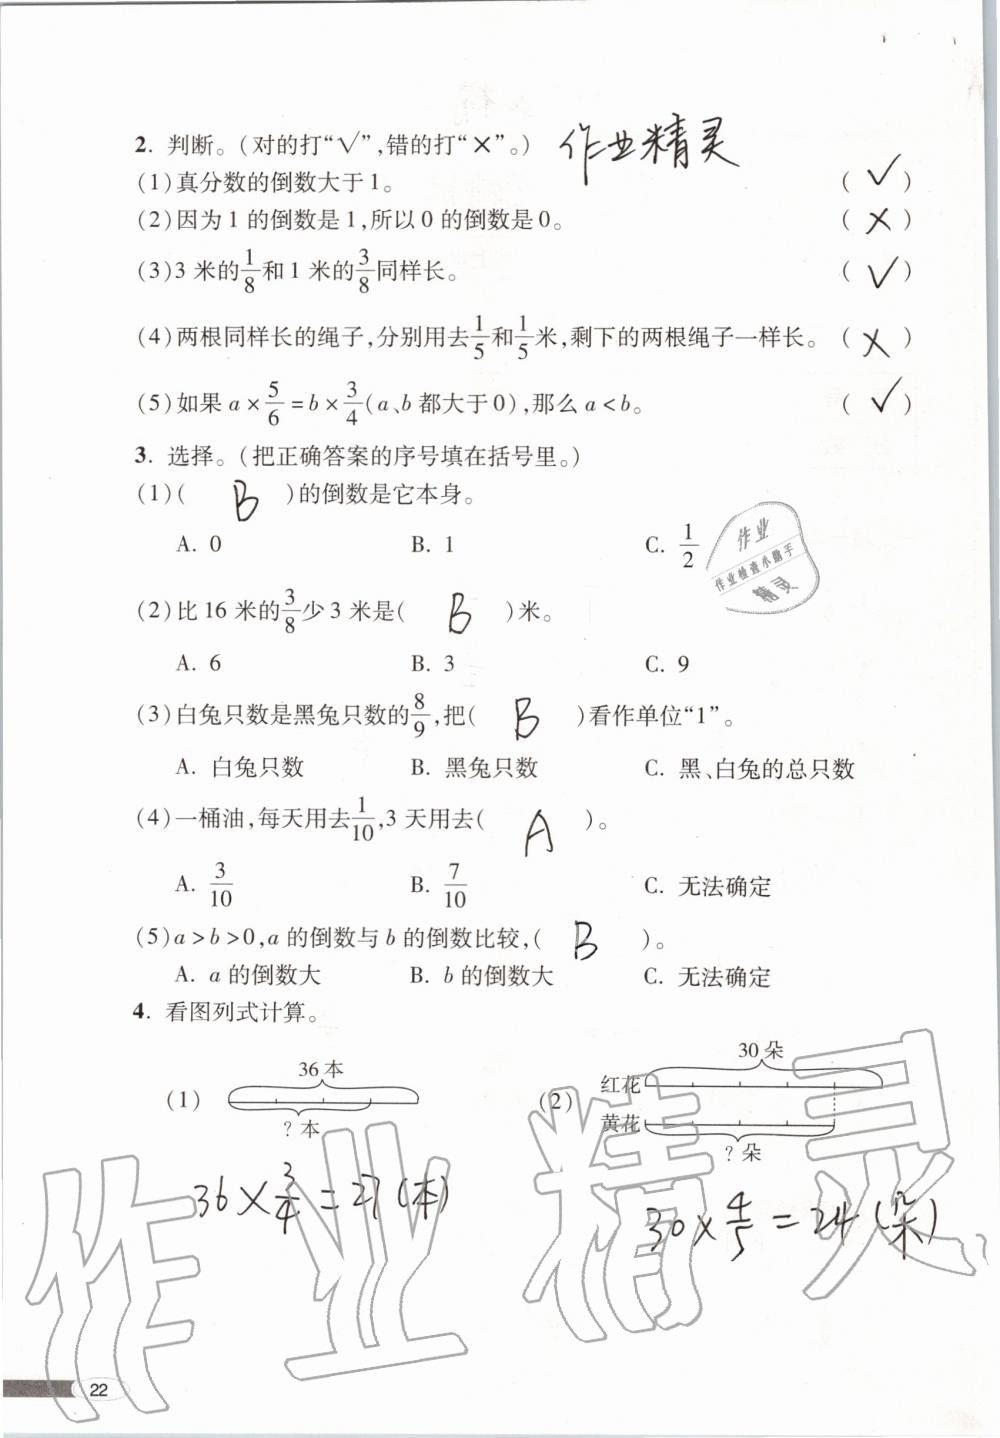 2. 判断。(对的打“√”,错的打“×”。) 作业精灵
(1)真分数的倒数大于1。 ( √ )
(2)因为1的倒数是1,所以0的倒数是0。 ( × )
(3)3米的1/8和1米的3/8同样长。 ( √ )
(4)两根同样长的绳子,分别用去1/5和1/5米,剩下的两根绳子一样长。 ( × )
(5)如果a×5/6=b×3/4(a、b都大于0),那么a<b。 ( √ )
3. 选择。(把正确答案的序号填在括号里。)
(1)( B )的倒数是它本身。
A. 0 B. 1 C. 1/2
作业
作业检查小助手
精灵
(2)比16米的3/8少3米是( B )米。
A. 6 B. 3 C. 9
(3)白兔只数是黑兔只数的8/9,把( B )看作单位“1”。
A. 白兔只数 B. 黑兔只数 C. 黑、白兔的总只数
(4)一桶油,每天用去1/10,3天用去( A )。
A. 3/10 B. 7/10 C. 无法确定
(5)a>b>0,a的倒数与b的倒数比较,( B )。
A. a的倒数大 B. b的倒数大 C. 无法确定
4. 看图列式计算。
(1) 36本
?本
36×3/4=27(本)
(2) 30朵
红花
黄花
?朵
30×4/5=24(朵)
作业精灵
22